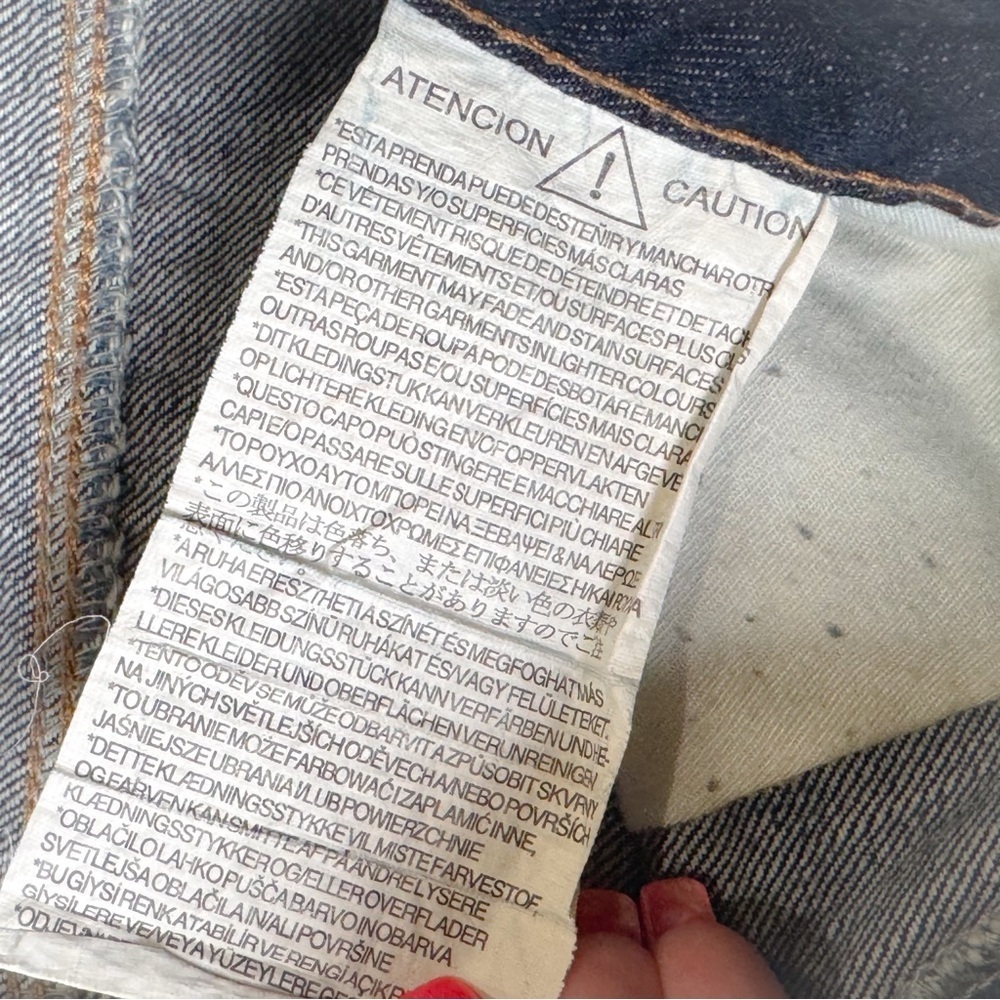 ATENCION ! CAUTION
*ESTA PRENDA PUEDE DESTEÑIR Y MANCHAR OTR
PRENDAS Y/O SUPERFICIES MÁS CLARAS
*CE VÊTEMENT RISQUE DE DÉTEINDRE ET DE TACH
D'AUTRES VÊTEMENTS ET/OU SURFACES PLUS
*THIS GARMENT MAY FADE AND STAIN SURFACES
AND/OR OTHER GARMENTS IN LIGHTER COLOURS
*ESTA PEÇA DE ROUPA PODE DESBOTAR E MANC
OUTRAS ROUPAS E/OU SUPERFÍCIES MAIS CLARA
*DIT KLEDINGSTUK KAN VERKLEUREN EN AFGEVE
OP LICHTERE KLEDING EN/OF OPPERVLAKTEN
*QUESTO CAPO PUÒ STINGERE E MACCHIARE ALTR
CAPI E/O PASSARE SULLE SUPERFICI PIÙ CHIARE
*ΤΟ ΡΟΥΧΟ ΑΥΤΟ ΜΠΟΡΕΙ ΝΑ ΞΕΒΑΨΕΙ & ΝΑ ΛΕΡΩΣ
ΑΛΛΕΣ ΠΙΟ ΑΝΟΙΧΤΟΧΡΩΜΕΣ ΕΠΙΦΑΝΕΙΕΣ Η/ΚΑΙ ΡΟΥΧΑ
*この製品は色落ち、または淡い色の衣類や
表面に色移りすることがありますのでご注
*A RUHA ERESZTHETI A SZÍNÉT ÉS MEGFOGHAT MÁS
VILÁGOSABB SZÍNŰ RUHÁKAT ÉS/VAGY FELÜLETEKET.
*DIESES KLEIDUNGSSTÜCK KANN VERFÄRBEN UND HE-
LLERE KLEIDER UND OBERFLÄCHEN VERUNREINIGEN
*TENTO ODĚV SE MŮŽE ODBARVIT A ZPŮSOBIT SKVRNY
NA JINÝCH SVĚTLEJŠÍCH ODĚVECH A/NEBO POVRŠÍCH
*TO UBRANIE MOŻE FARBOWAĆ I ZAPLAMIĆ INNE,
JAŚNIEJSZE UBRANIA I/LUB POWIERZCHNIE
*DETTE KLÆDNINGSSTYKKE VIL MISTE FARVESTOF,
OG FARVEN KAN SMITTE AF PÅ ANDRE LYSERE
KLÆDNINGSSTYKKER OG/ELLER OVERFLADER
*OBLAČILO LAHKO PUŠČA BARVO IN OBARVA
SVETLEJŠA OBLAČILA IN/ALI POVRŠINE
*BU GİYSİ RENK ATABİLİR VE RENGİ AÇIK R
GİYSİLERE VE/VEYA YÜZEYLERE GEÇ